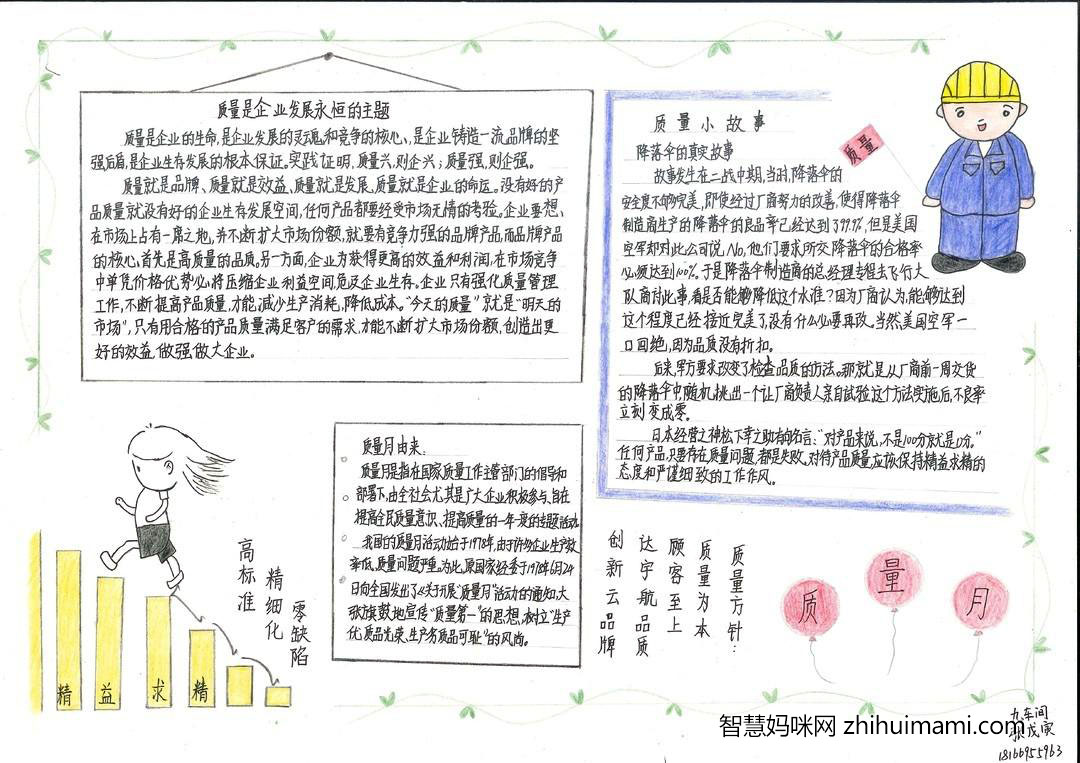 质量是企业发展永恒的主题
质量是企业的生命,是企业发展的灵魂和竞争的核心,是企业铸造一流品牌的坚
强后盾,是企业生存发展的根本保证。实践证明,质量兴,则企兴;质量强,则企强。
质量就是品牌、质量就是效益、质量就是发展、质量就是企业的命运。没有好的产
品质量就没有好的企业生存发展空间,任何产品都要经受市场无情的考验。企业要想、
在市场上占有一席之地,并不断扩大市场份额,就要有竞争力强的品牌产品,而品牌产品
的核心,首先是高质量的品质。另一方面,企业为获得更高的效益和利润,在市场竞争
中单凭价格优势必将压缩企业利益空间,危及企业生存。企业只有强化质量管理
工作,不断提高产品质量,才能,减少生产消耗,降低成本。“今天的质量”就是“明天的
市场”,只有用合格的产品质量满足客户的需求,才能不断扩大市场份额,创造出更
好的效益,做强做大企业。
质量小故事
降落伞的真实故事
故事发生在二战中期,当时,降落伞的
安全度不够完美,即使经过厂商努力的改善,使得降落伞
制造商生产的降落伞的良品率已经达到了99.9%,但是美国
空军却对此公司说,No,他们要求所交降落伞的合格率
必须达到100%。于是降落伞制造商的总经理专程去飞行大
队商讨此事,看是否能够降低这个水准?因为厂商认为,能够达到
这个程度已经接近完美了,没有什么必要再改。当然美国空军一
口回绝,因为品质没有折扣。
后来,军方要求改变了检查品质的方法。那就是从厂商前一周交货
的降落伞中,随机挑出一个,让厂商负责人亲自试验这个方法实施后,不良率
立刻变成零。
日本经营之神松下幸之助有句名言:“对产品来说,不是100分就是0分。”
任何产品,只要存在质量问题,都是失败,对待产品质量应该保持精益求精的
态度和严谨细致的工作作风。
质量
质量月由来:
质量月是指在国家质量工作主管部门的倡导和
部署下,由全社会尤其是广大企业积极参与、旨在
提高全民质量意识、提高质量的一年一度的专题活动
我国的质量月活动始于1978年,由于许多企业生产效
率低,质量问题严重。为此,原国家经委于1978年6月24
日向全国发出了《关于开展“质量月”活动的通知,大
张旗鼓地宣传“质量第一”的思想,树立“生产
优质品光荣、生产劣质品可耻”的风尚。
高标准
精细化
零缺陷
精益求精
质量方针:
质量为本
顾客至上
达宇航品质
创新云品牌
质量月
九车间
张戊寅
18166955963
智慧妈咪网 zhihuimami.com